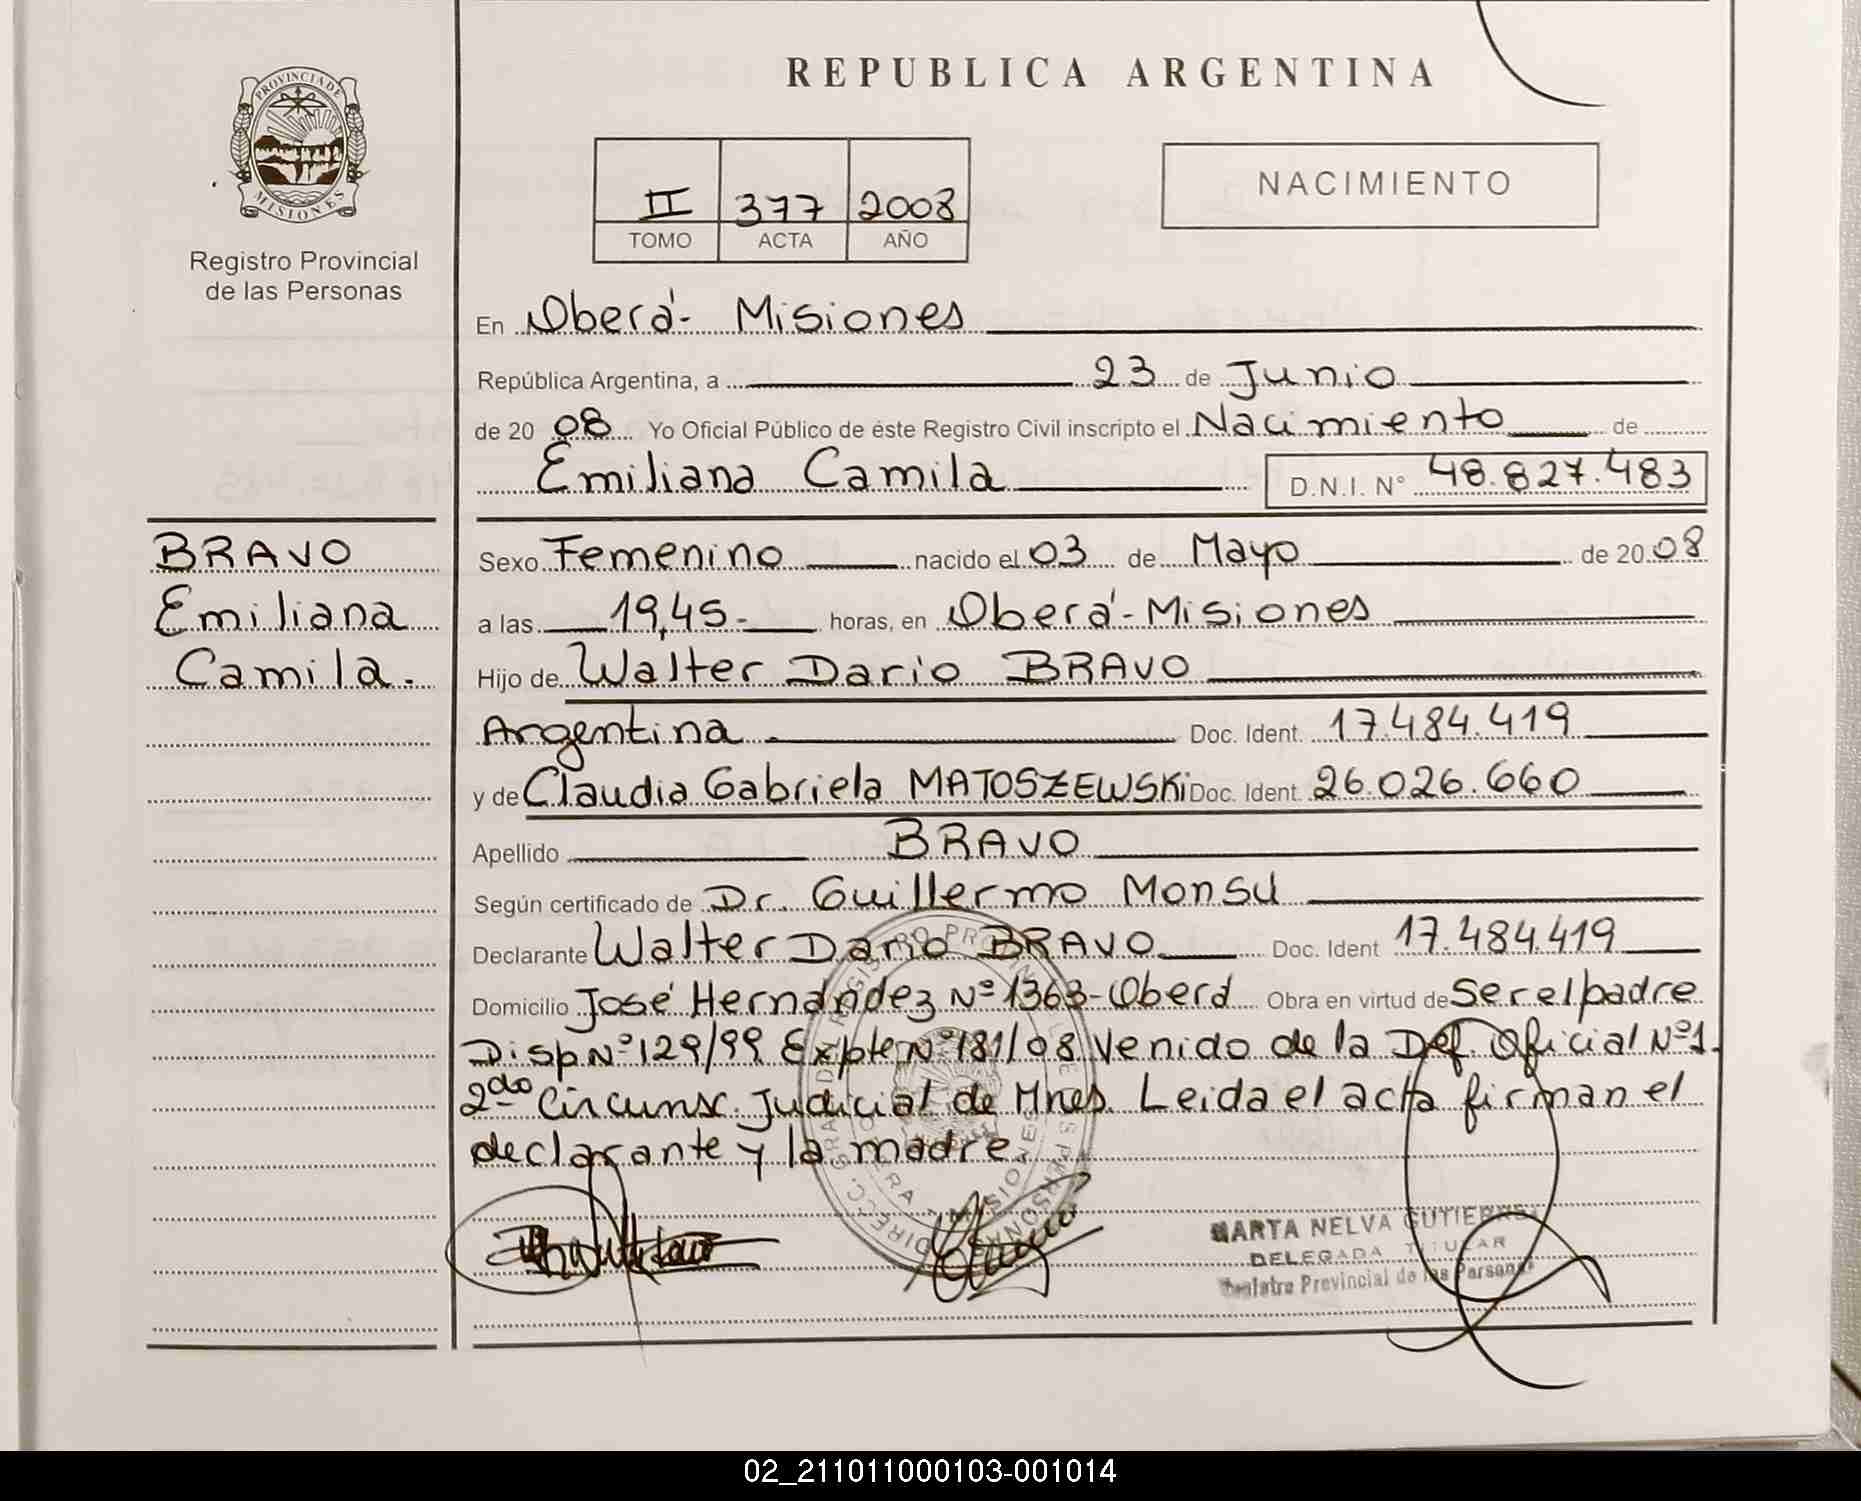 REPUBLICA ARGENTINA
PROVINCIA DE
MISIONES
Registro Provincial
de las Personas
II 377 2008
TOMO ACTA AÑO
NACIMIENTO
En Oberá - Misiones
República Argentina, a 23 de Junio
de 20 08 Yo Oficial Público de éste Registro Civil inscripto el Nacimiento de
Emiliana Camila D.N.I. N° 48.827.483
BRAVO
Emiliana
Camila.
Sexo Femenino nacido el 03 de Mayo de 20 08
a las 19,45- horas, en Oberá - Misiones
Hijo de Walter Dario BRAVO
Argentina Doc. Ident. 17.484.419
y de Claudia Gabriela MATOSZEWSKi Doc. Ident. 26.026.660
Apellido BRAVO
Según certificado de Dr. Guillermo Monsu
Declarante Walter Dario BRAVO Doc. Ident 17.484.419
Domicilio José Hernández Nº 1363 - Oberá Obra en virtud de Ser el padre
Disp Nº 129/99 Expte Nº 181/08 Venido de la Def. Oficial Nº 1.
2do Circunsc. Judicial de Mnes. Leida el acta firman el
declarante y la madre.
MARTA NELVA GUTIERREZ
DELEGADA TITULAR
Registro Provincial de las Personas
02_211011000103-001014